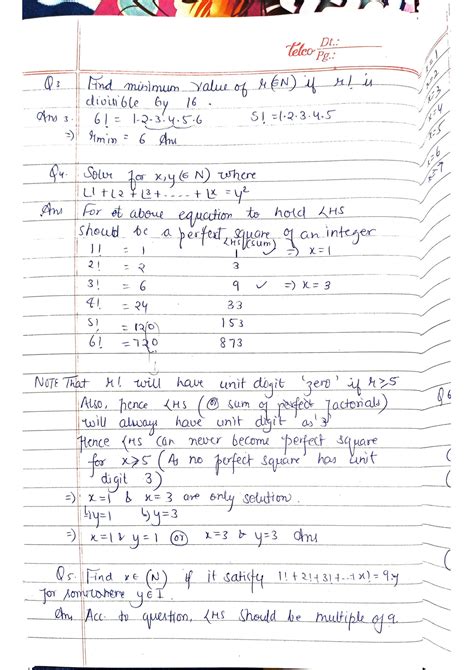 Telco Dt.:
Pg.:
Q3 Find minimum value of r(∈N) if r! is
divisible by 16.
Ans 3. 6! = 1·2·3·4·5·6 5! = 1·2·3·4·5
⇒) rmin = 6 Ans
Q4. Solve for x,y(∈N) where
⌊1 + ⌊2 + ⌊3 + ..... + ⌊x = y²
Ans For above equation to hold LHS
should be a perfect square of an integer
LHS (sum)
1! = 1 1 ✓ ⇒) x=1
2! = 2 3
3! = 6 9 ✓ ⇒) x=3
4! = 24 33
5! = 120 153
6! = 720 873
NOTE That r! will have unit digit 'zero' if r≥5
Also, hence LHS ( sum of perfect factorials)
will always have unit digit as '3'
Hence LHS can never become perfect square
for x≥5 (As no perfect square has unit
digit 3)
⇒) x=1 & x=3 are only solution.
↳y=1 ↳y=3
⇒) x=1 & y=1 or x=3 & y=3 Ans
Q5. Find x∈(N) if it satisfy 1!+2!+3!+...+x!=9y
for somewhere y∈I.
Ans Acc. to question, LHS should be multiple of 9.
x=1
x=3
x=4
x=5
x=6
x=7
Q6